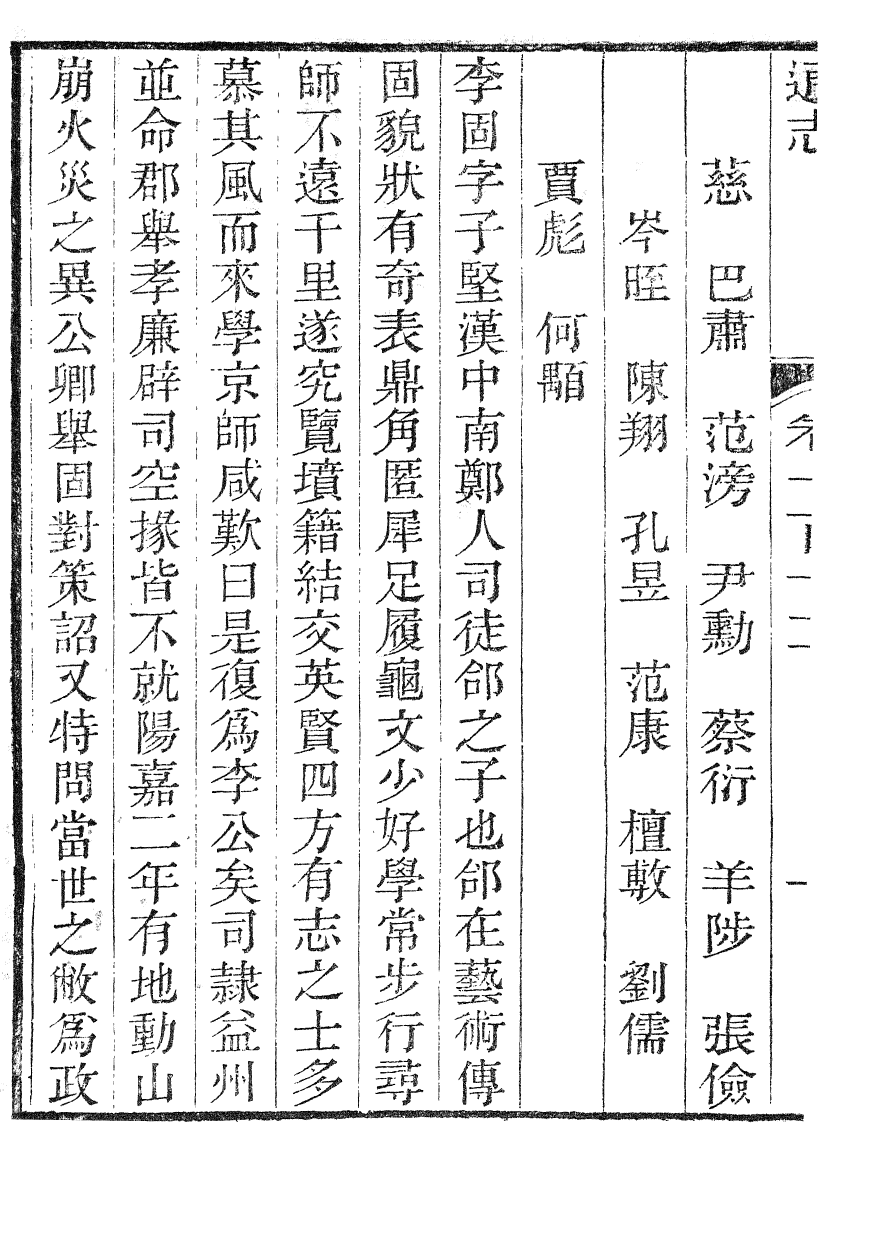 通志
慈　巴肅　范滂　尹勳　蔡衍　羊陟　張儉
岑晊　陳翔　孔昱　范康　檀敷　劉儒
賈彪　何顒
李固字子堅漢中南鄭人司徒郃之子也郃在藝術傳
固貌狀有奇表鼎角匿犀足履龜文少好學常步行尋
師不遠千里遂究覽墳籍結交英賢四方有志之士多
慕其風而來學京師咸歎曰是復為李公矣司隸益州
並命郡舉孝廉辟司空掾皆不就陽嘉二年有地動山
崩火災之異公卿舉固對策詔又特問當世之敝為政